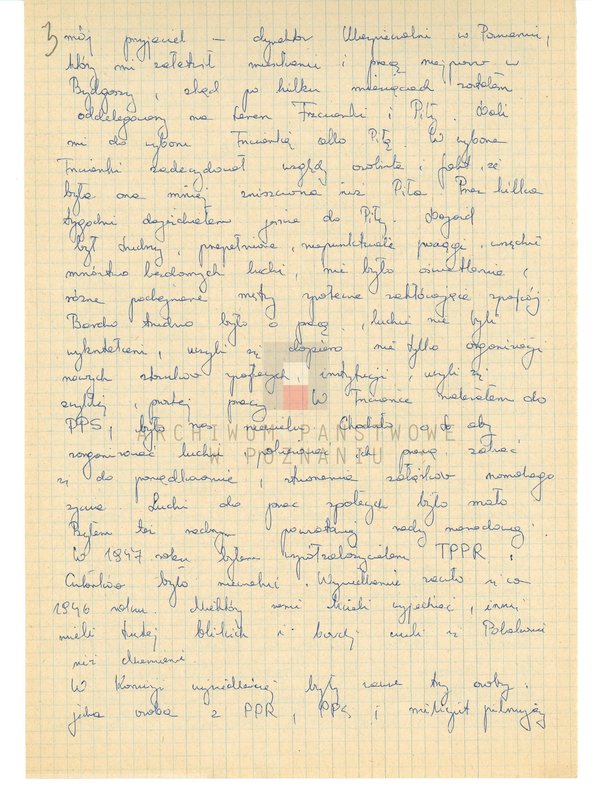 3 mój przyjaciel – dyrektor Ubezpieczalni w Poznaniu,
który mi załatwił mieszkanie i pracę najpierw w
Bydgoszy, skąd po kilku miesiącach zostałem
oddelegowany na teren Trzcianki i Piły. Dali
mi do wyboru Trzciankę albo Piłę. W wyborze
Trzcianki zadecydował wzgldy osobiste i fakt, że
była ona mniej zniszczona niż Piła. Przez kilka
tygodni dojeżdżałem jeszcze do Piły. Dojazd
był trudny, przepełnione, niepunktualne pociągi, wszędzie
mnóstwo bezdomnych ludzi, nie było oświetlenia,
różne podejrzane męty społeczne zakłócające spokój.
Bardzo trudno było o pracę, ludzie nie byli
wykształceni, uczyli się dopiero nie tylko organizacji
nowych, instytucji, uczyli się
zwykłej, prostej pracy. W Trzciance należałem do
PPS, było nas niewielu. Chodziło o to aby
zorganizować ludzi, pokierować ich pracą, zabrać
się do porządkowania, stworzenia zalążków normalnego
życia. Ludzi do prac społecznych było mało
Byłem też radnym powiatowej rady narodowej.
W 1947 roku byłem współzałożycielem TPPR,
Członków było niewielu. Wysiedlanie zaczęło się w
1946 roku. Niektórzy sami chcieli wyjechać, inni
mieli tutaj bliskich i bardziej czuli się Polakami
niż Niemcami
W Komisji wysiedleńczej były zawsze trzy osoby.
jedna osoba z PPR, PPS i milicjant pilnujący
ARCHIWUM PAŃSTWOWE
W POZNANIU